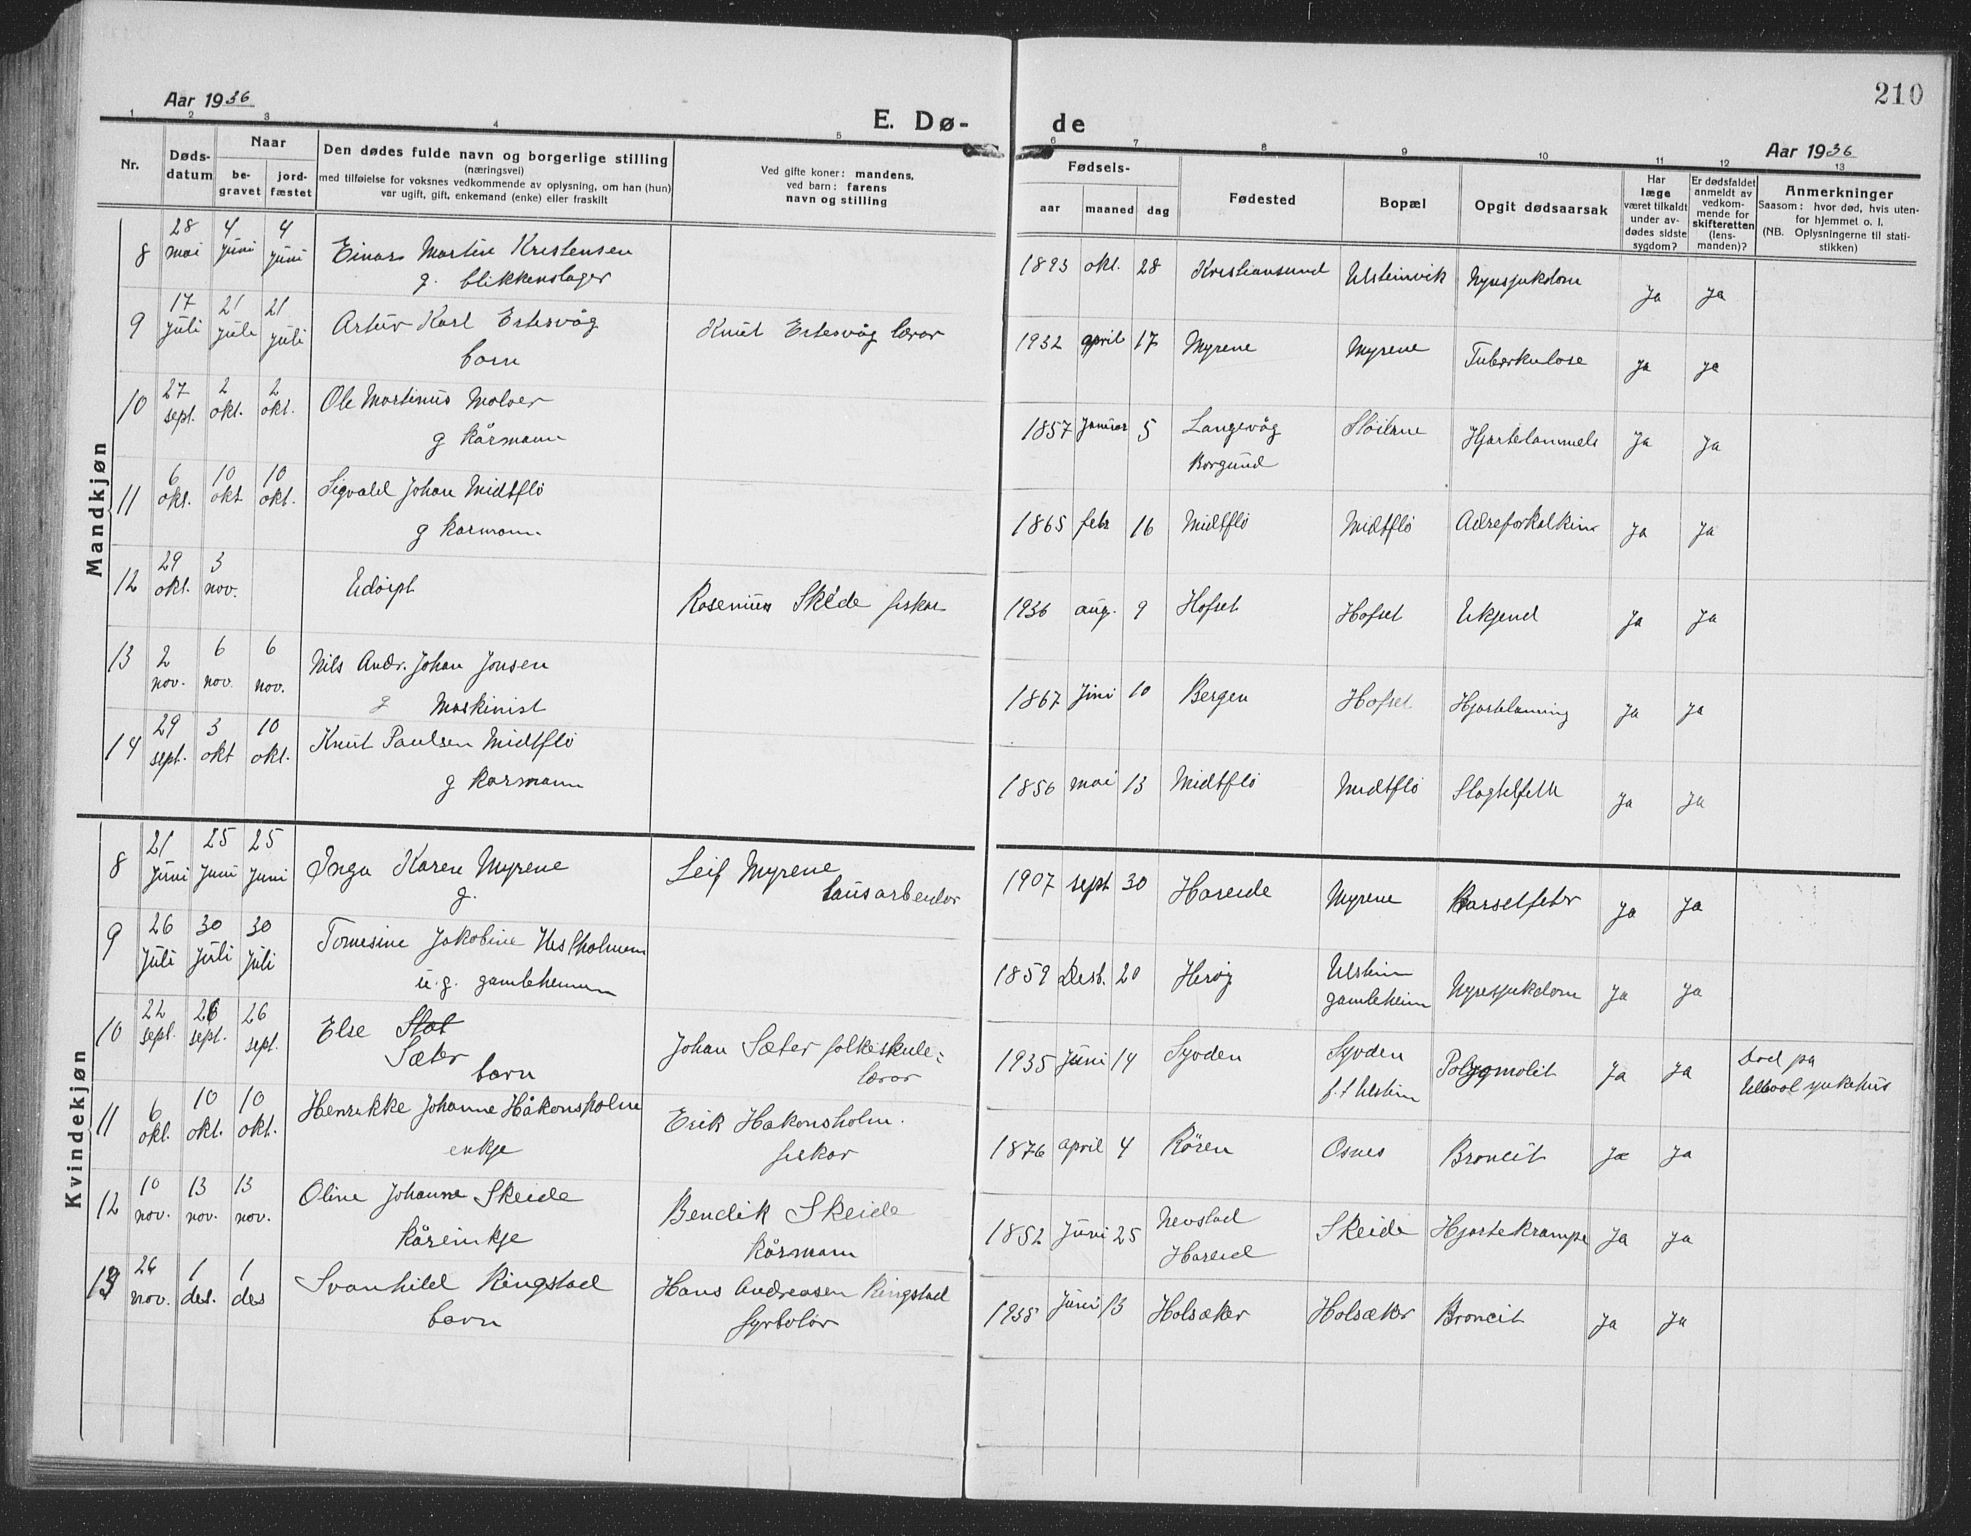 210
Aar 1936
E. Dø-
de
Aar 1936
1 2 3 4 5 6 7 8 9 10 11 12 13
Nr.
Døds-
datum
Naar
be-
gravet
jord-
fæstet
Den dødes fulde navn og borgerlige stilling
(næringsvei)
med tilføielse for voksnes vedkommende av oplysning, om han (hun)
var ugift, gift, enkemand (enke) eller fraskilt
Ved gifte koner: mandens,
ved barn: farens
navn og stilling
Fødsels-
aar maaned dag
Fødested
Bopæl
Opgit dødsaarsak
Har
læge
været tilkaldt
under av-
dødes sidste
sygdom?
Er dødsfaldet
anmeldt av
vedkom-
mende for
skifteretten
(lens-
manden)?
Anmerkninger
Saasom: hvor død, hvis uten-
for hjemmet o. l.
(NB. Oplysningerne til stati-
stikken)
Mandkjøn
8 28 mai 4 juni 4 juni Einar Martin Kristensen 1893 okt. 28 Kristiansund Ulsteinvik Nyresjukdom Ja Ja
g. blikkenslager
9 17 juli 21 juli 21 juli Artur Karl Ertesvåg Knut Ertesvåg lærar 1932 april 17 Myrene Myrene Tuberkulose Ja Ja
barn
10 27 sept. 2 okt. 2 okt. Ole Martinus Molver 1857 januar 5 Langevåg Ja Ja
g kårmann Borgund
11 6 okt. 10 okt 10 okt. Sigvald Johan Midtflø 1865 febr 16 Midtflø Midtflø Ja Ja
g karmann
12 29 okt. 3 nov. Udøypt Rasmus Skeide fiskar 1936 aug. 9 Hofset Hofset Ukjend Ja Ja
13 2 nov. 6 nov. 6 nov. Nils Andr. Johan Jonsen 1867 juni 10 Bergen Hofset Hjartelaming Ja Ja
g Maskinist
14 29 sept. 3 okt 10 okt. Knut Paulsen Midtflø 1856 mai 13 Midtflø Midtflø Ja Ja
g karmann
Kvindekjøn
8 21 juni 25 juni 25 juni Inga Karen Myrene Leif Myrene 1907 sept 30 Hareide Myrene Barselfeber Ja Ja
g. lausarbeidar
9 26 juli 30 juli 30 juli Tomesine Jakobine Hestholmen 1859 Desb. 20 Herøy Ulstein Nyresjukdom Ja Ja
u.g. gamleheimen gamleheim
10 22 sept. 26 sept. 26 sept. Else Slot Johan Sæter folkeskule- 1935 juni 14 Syvden Syvden Ja Ja Død på
Sæter lærar f. t Ulstein Ullevål sjukehus
barn
11 6 okt. 10 okt. 10 okt. Henrikke Johanne Håkonsholm Erik Hakonsholm. 1876 april 4 Røren Osnes Broncit Ja Ja
enkje fiskar
12 10 nov. 13 nov. 13 nov. Oline Johanne Skeide Bendik Skeide 1852 juni 25 Nevstad Skeide Hjartekrampe Ja Ja
kårenkje kårmann Hareid
13 26 nov. 1 des. 1 des Svanhild Ringstad Hans Andreasen Ringstad 1935 juni 13 Holsæker Holsæker Broncit Ja Ja
barn fyrbøtar